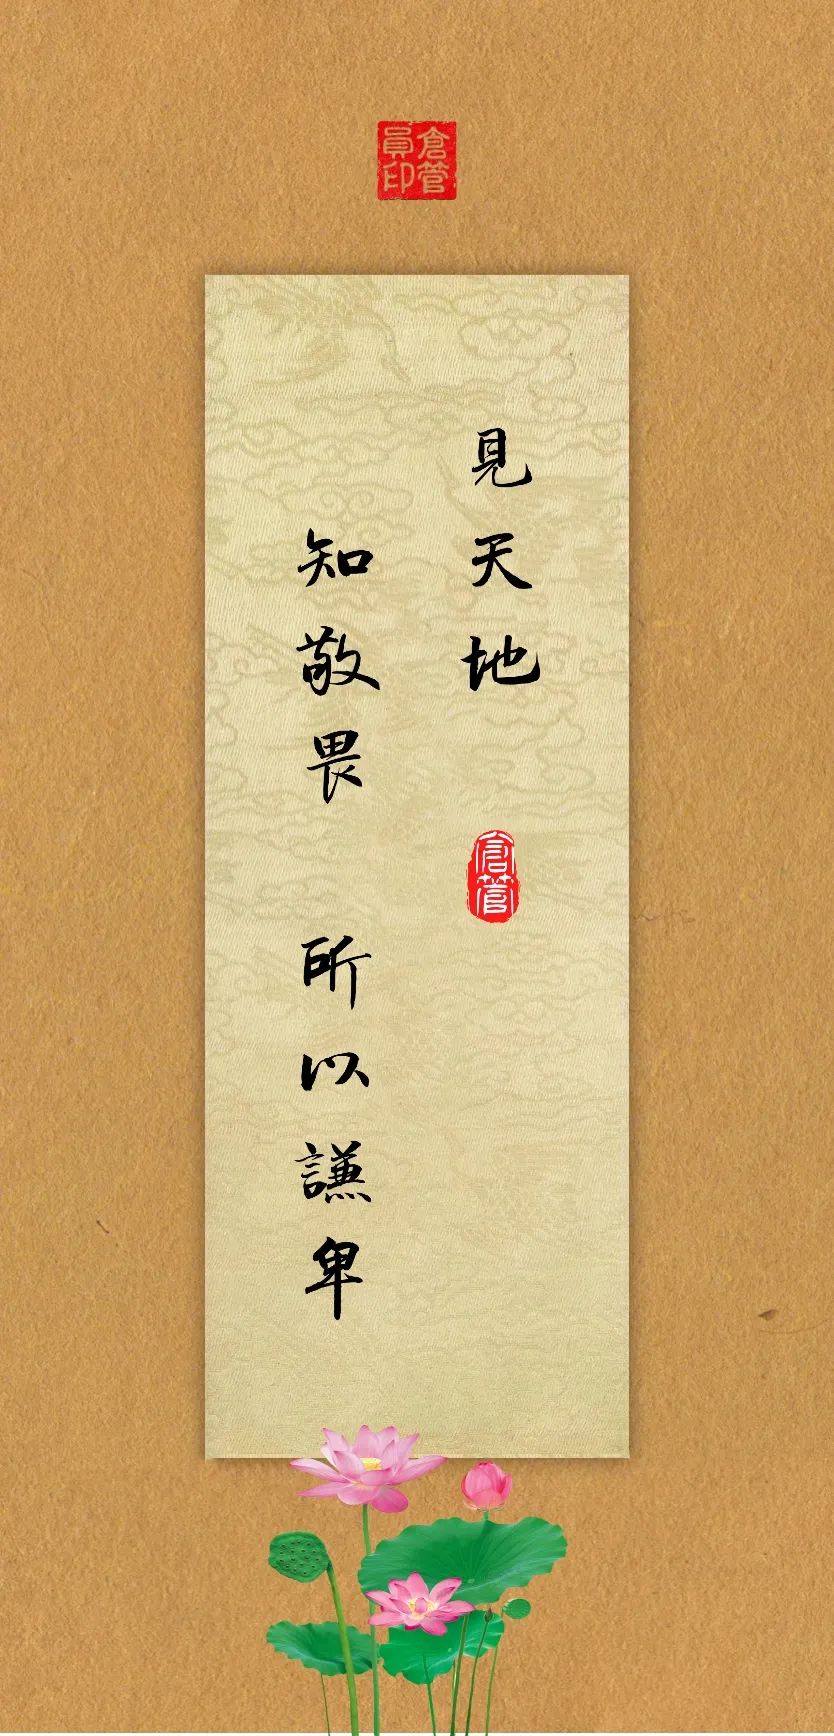 倉管員印
見天地
倉管
知敬畏 所以謙卑